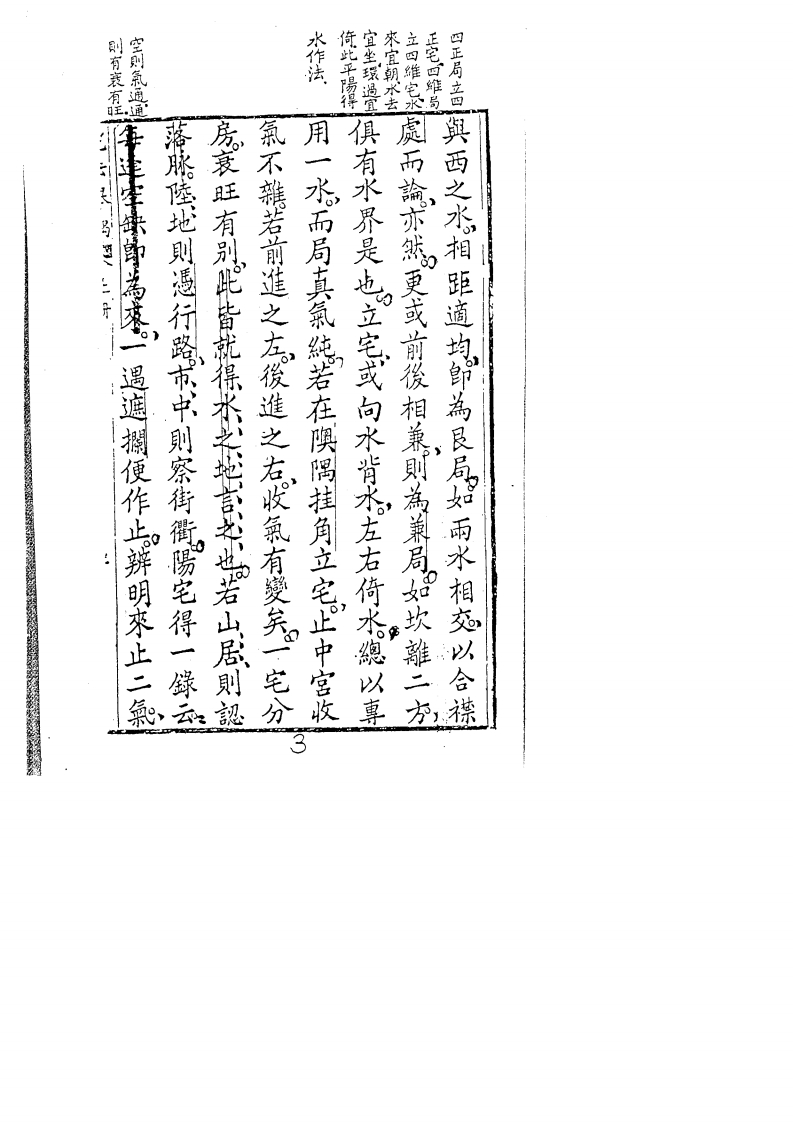 四正局立四
正宅四維局
立四維宅水
來宜朝水去
宜坐環過宜
倚此平陽得
水作法、
空則氣通通
則有衰有旺
與西之水。相距適均。卽為艮局。如兩水相交。以合襟
處而論。亦然。更或前後相兼。則為兼局。如坎離二方。
俱有水界是也。立宅、或向水背水。左右倚水。總以專
用一水。而局真氣純。若在隩隅挂角立宅。止中宮收
氣不雜。若前進之左。後進之右。收氣有變矣。一宅分
房。衰旺有別。此皆就得水之地言之也。若山居、則認
落脉。陸地則憑行路。市中則察街衢。陽宅得一錄云
每逢空缺卽為來。一遇遮攔便作止。辨明來止二氣。
3